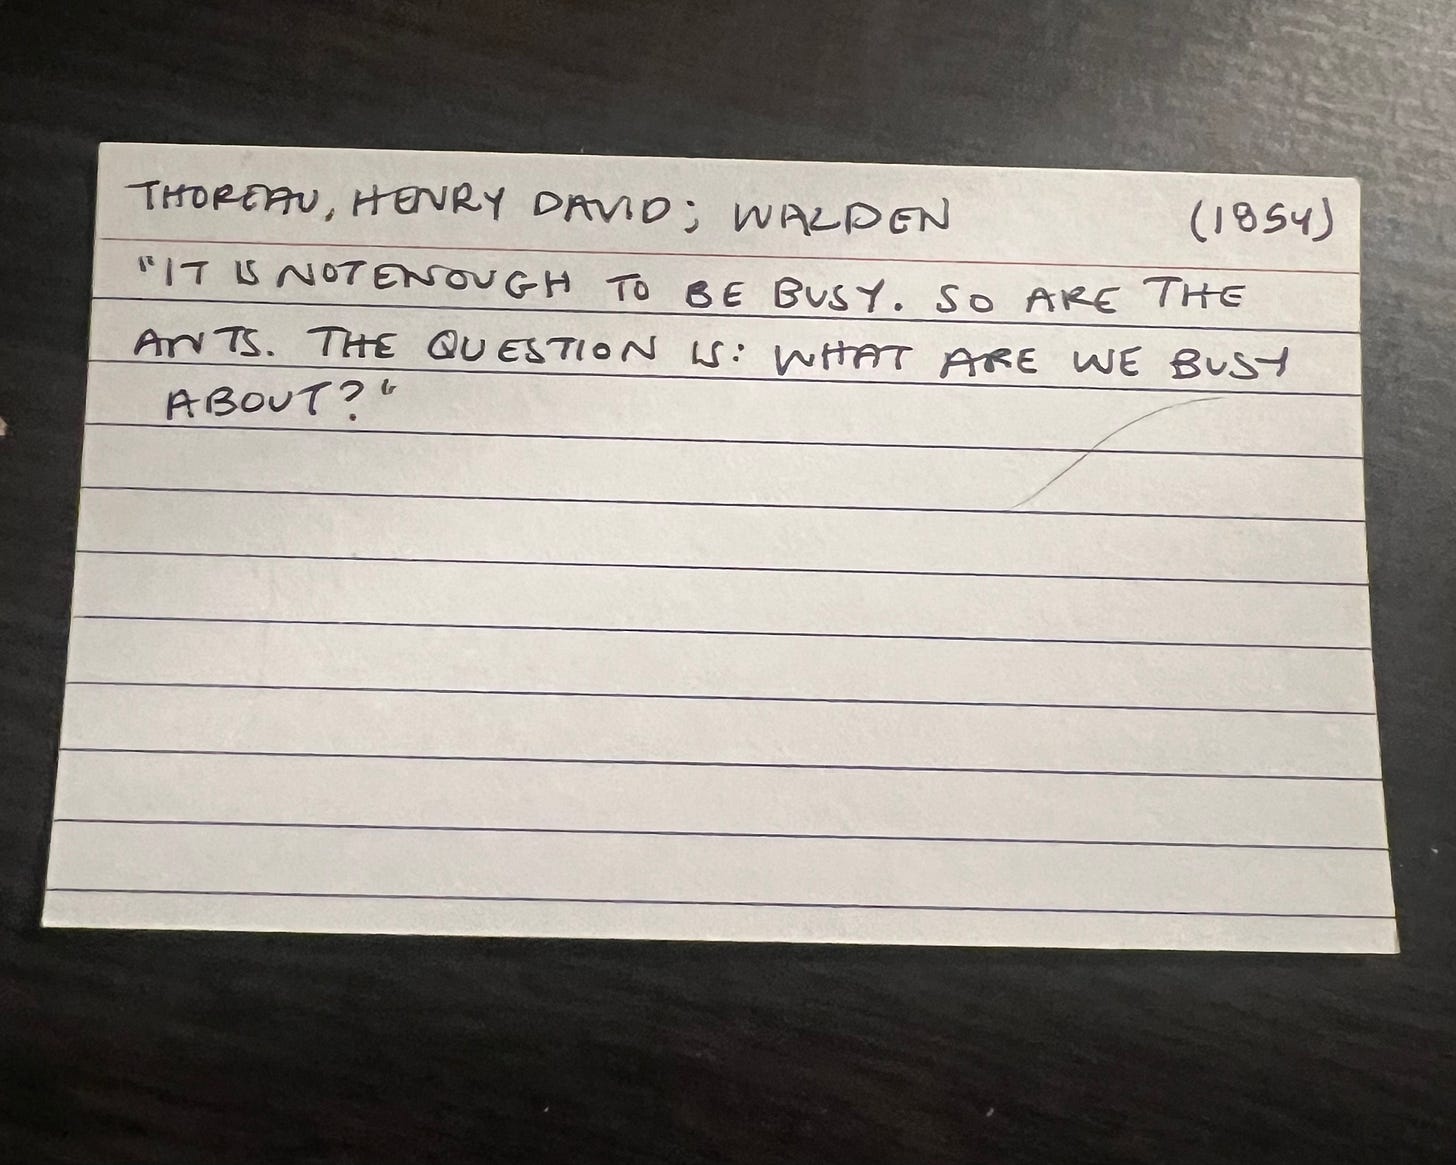 THOREAU, HENRY DAVID; WALDEN (1854)
"IT IS NOT ENOUGH TO BE BUSY. SO ARE THE
ANTS. THE QUESTION IS: WHAT ARE WE BUSY
ABOUT?"